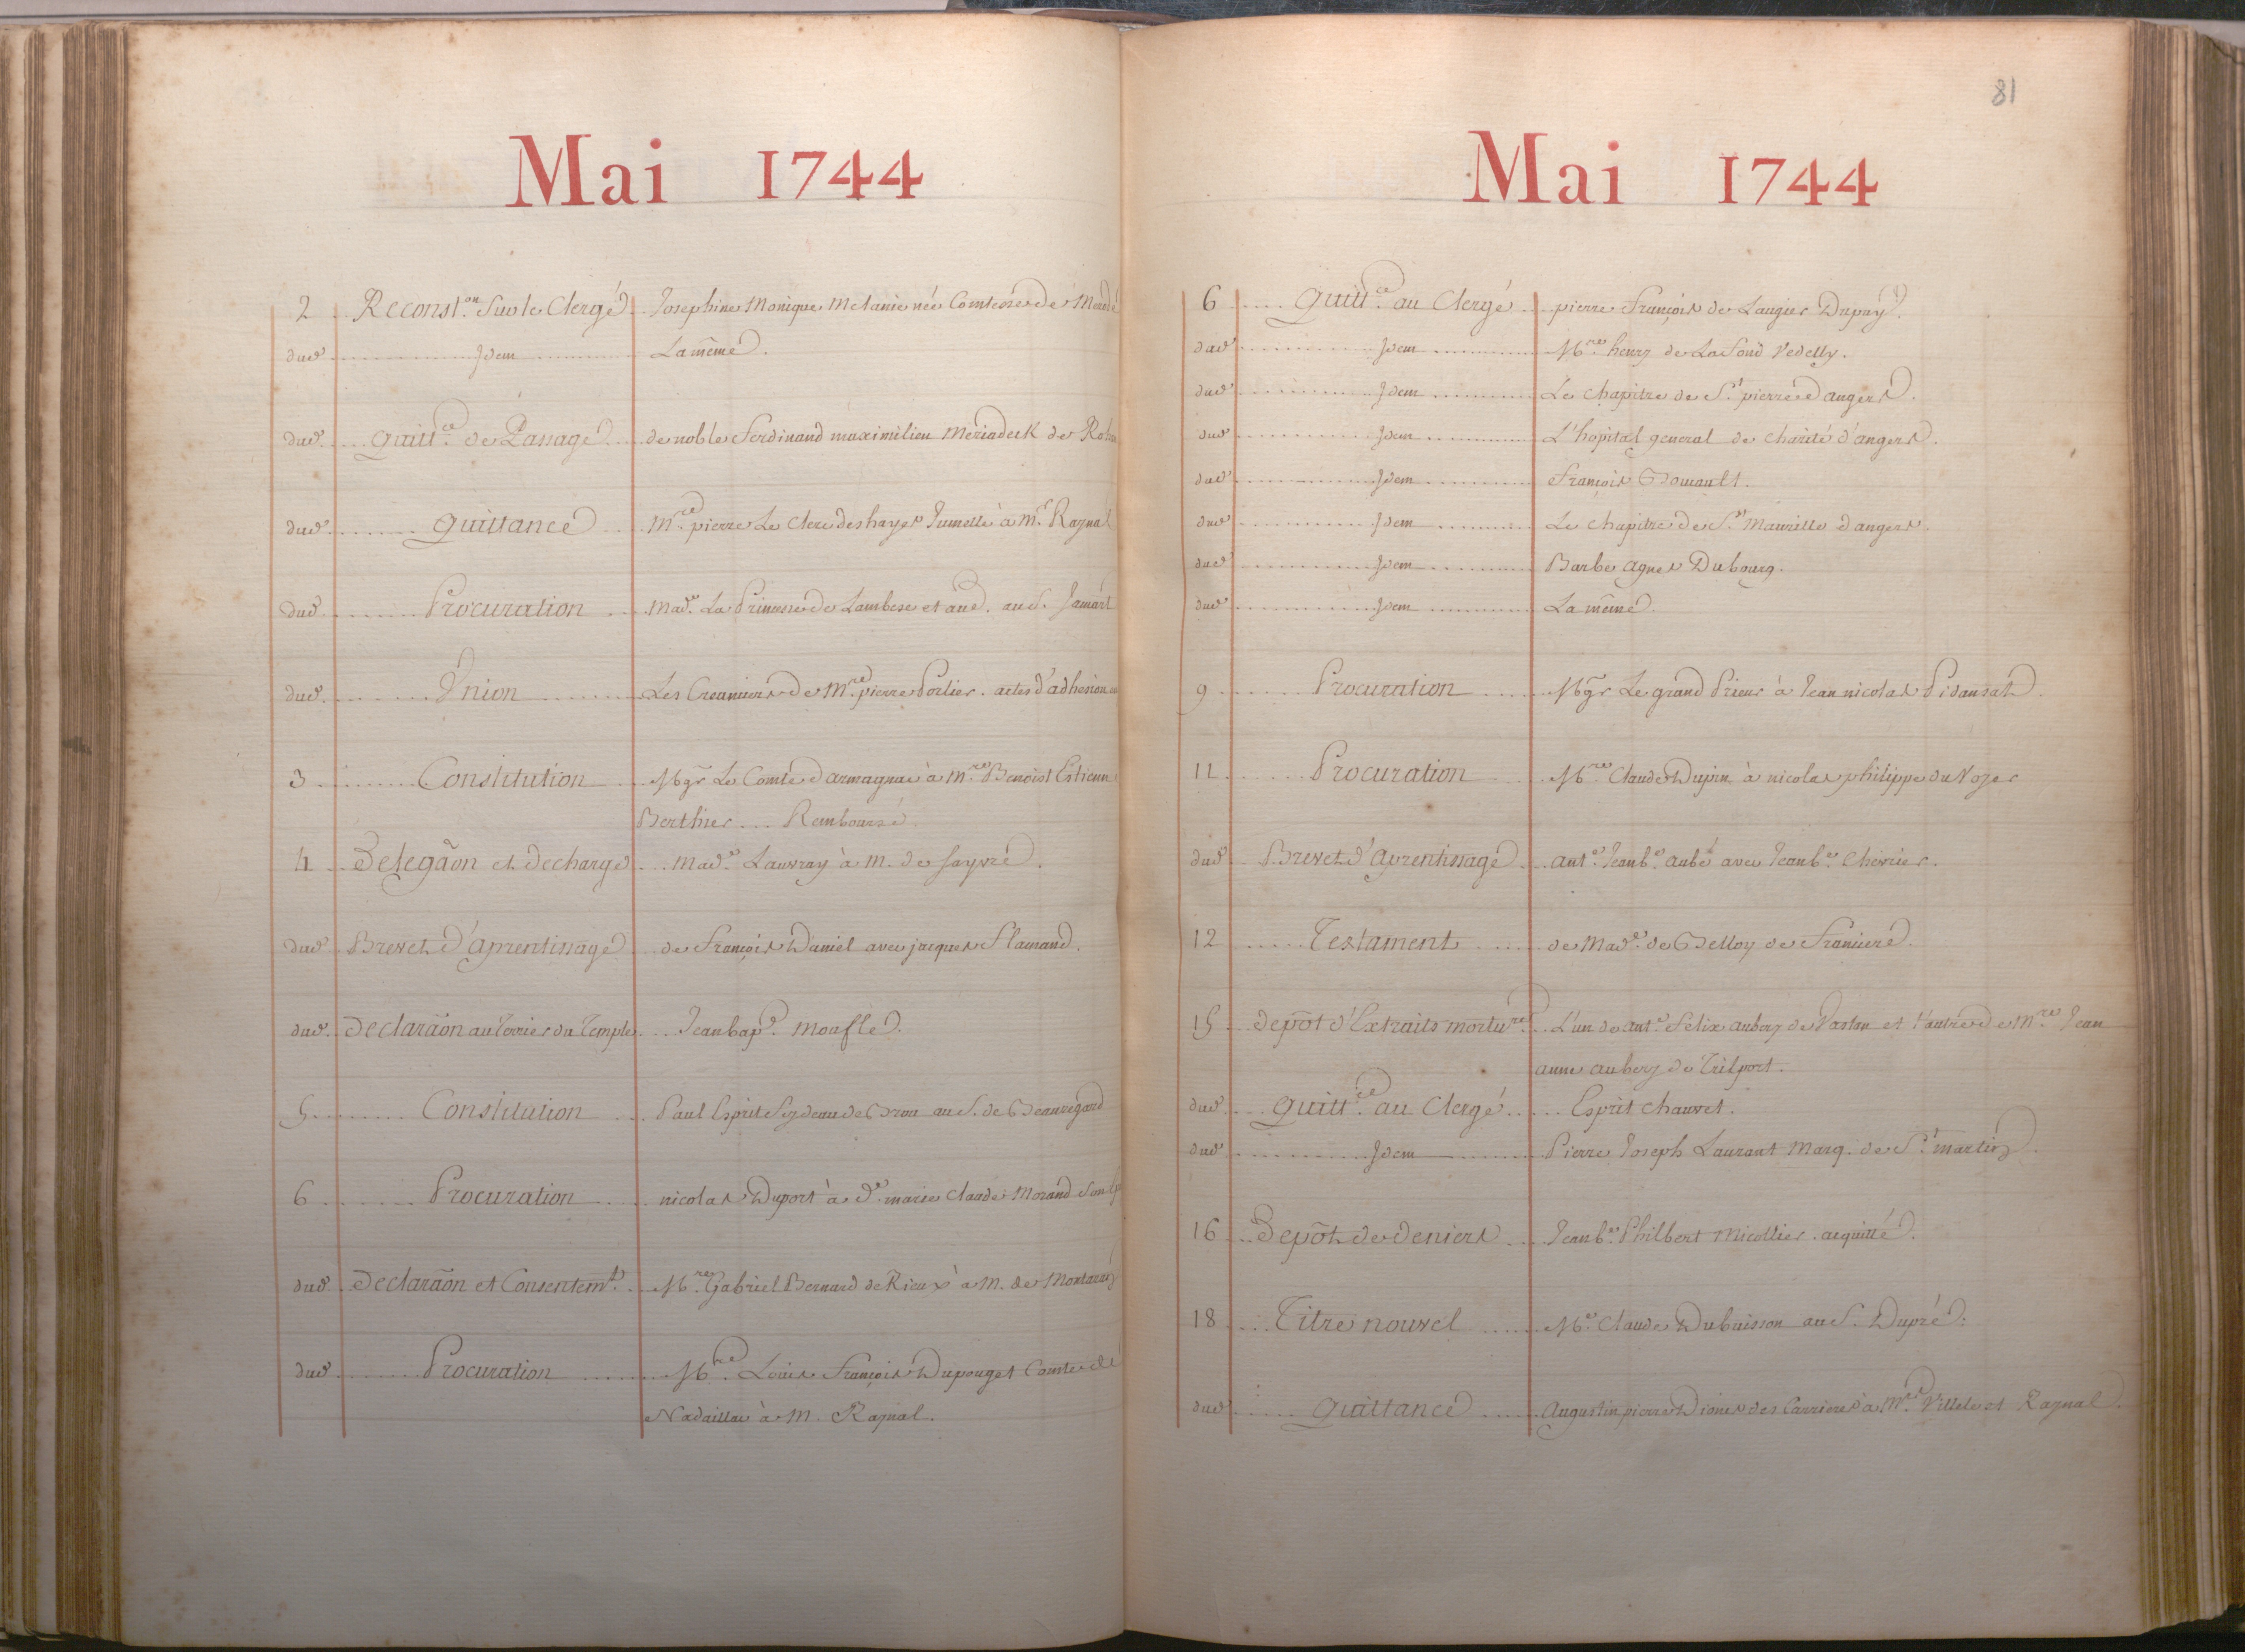 Mai 1744
2 Reconst.on Sur le Clergé Josephine Monique Melanie née Comtesse de
dud. Idem La même.
dud. Quitt.ce de Passage de noble ferdinand maximilien Meriadeck de
dud. Quittance M.re pierre Le Clerc deshayes Jumelle à M.r Raynal
dud. Procuration Mad.e La Princesse de Lambesc et aûe. au S. Jamart
dud. Union Les Creanciers de M.re pierre Portier. actes d'adhesion
3 Constitution Mgr Le Comte d'armagnac à M.re Benoist Estienne
Berthier ... Remboursé.
4 Delegãon et decharge Mad.e Lauvray à M. de Sayvre.
dud. Brevet d'aprentissage de François Daniel avec jacques Flamand.
dud. Declarãon au Terrier du Temple Jean bap.e Moufle.
5 Constitution Paul Esprit Feydeau de Brou au S. de Beauregard
6 Procuration nicolas Duport à d.e marie Claude Morand
dud. Declarãon et Consentem.t M.re Gabriel Bernard de Rieux à M. de
dud. Procuration M.re Louis François Dupouget Comte de
Nadaillac à M. Raynal.
81
Mai 1744
6 Quitt.ce au Clergé pierre François de Laugier Dupuy.
dud. Idem M.re henry de Lafond Vedelly.
dud. Idem Le Chapitre de S.t pierre d'angers.
dud. Idem L'hopital general de charité d'angers.
dud. Idem François Bouault.
dud. Idem Le Chapitre de S.t Maurille d'angers.
dud. Idem Barbe agnes Dubourg.
dud. Idem La même.
9 Procuration Mgr Le grand Prieur à Jean nicolas Pidansat.
11 Procuration M.re Claude Dupin à nicolas philippe du Noyer
dud. Brevet d'aprentissage ant.e Jean b.e aubé avec Jean b.e Chevrier.
12 Testament de Mad.e de Belloy de Franiere.
15 depôt d'Extraits mortu.res L'un de ant.e felix aubery de Vastan et l'autre de M.re Jean
anne aubery de Trilport.
dud. Quitt.ce au Clergé Esprit Chauvet.
dud. Idem Pierre Joseph Laurant Marq. de S.t martin.
16 Depôt de deniers Jean b.e Philbert Micollier. acquitté.
18 Titre nouvel M.e Claude Dubuisson au S. Dupré.
dud. Quittance Augustin pierre Dionis des Carrieres à M.rs Villele et Raynal.